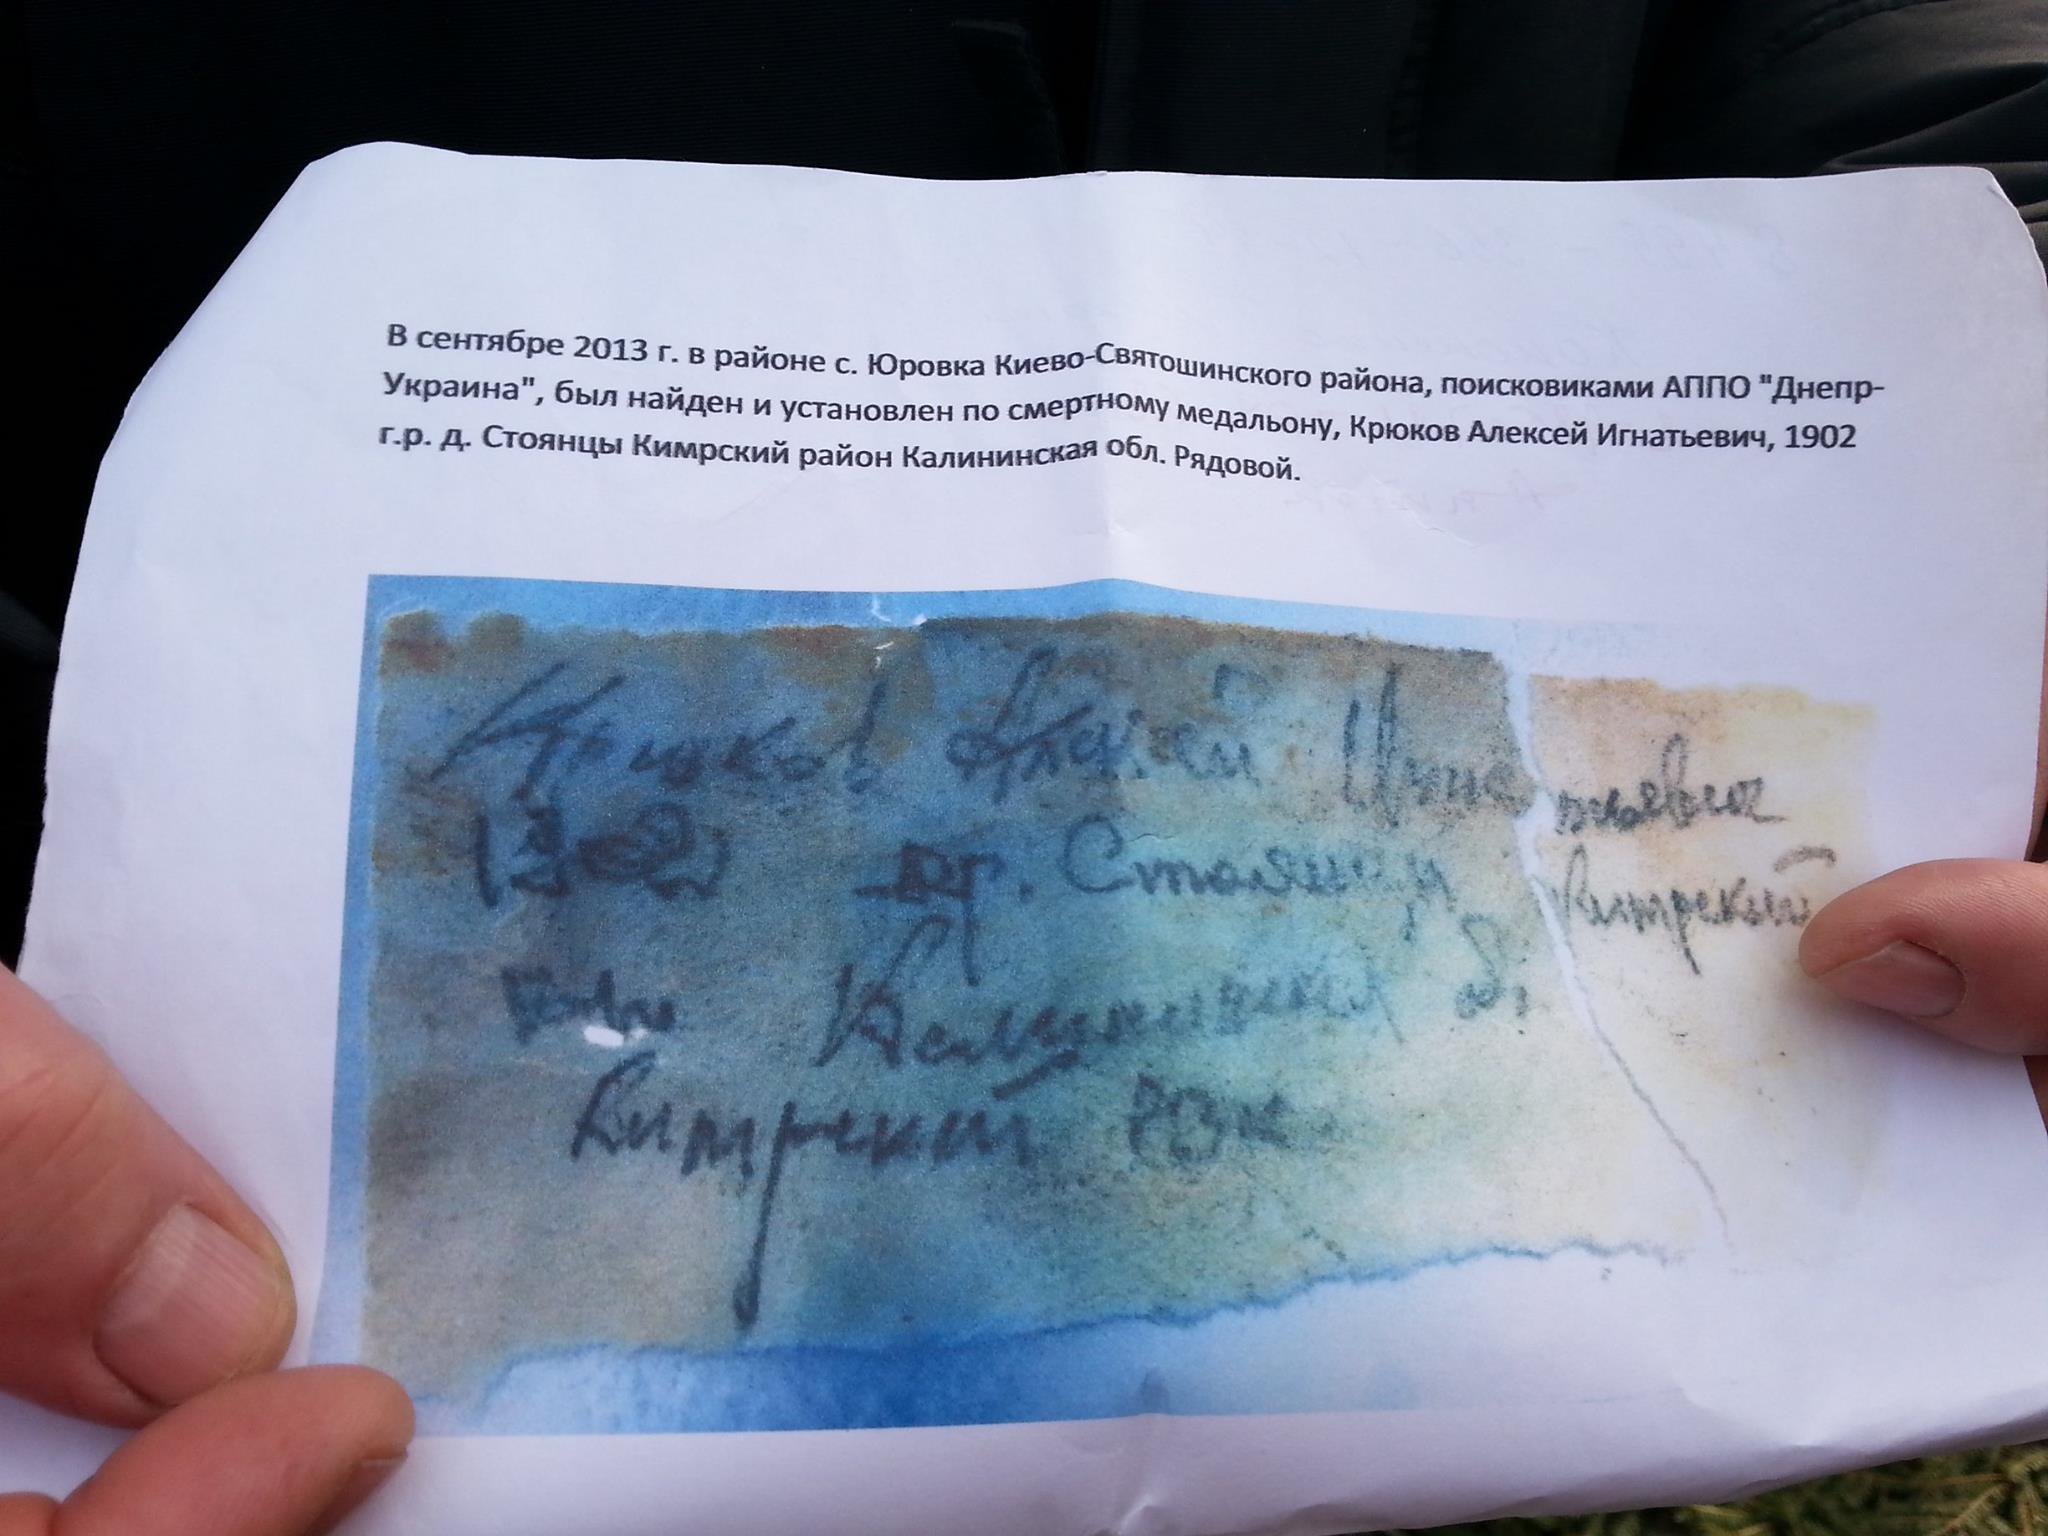 В сентябре 2013 г. в районе с. Юровка Киево-Святошинского района, поисковиками АППО "Днепр-
Украина", был найден и установлен по смертному медальону, Крюков Алексей Игнатьевич, 1902
г.р. д. Стоянцы Кимрский район Калининская обл. Рядовой.
Крюков Алексей Игнатьевич
1902 др. Стоянцы Кимрский
Калининская
Кимрский РВК